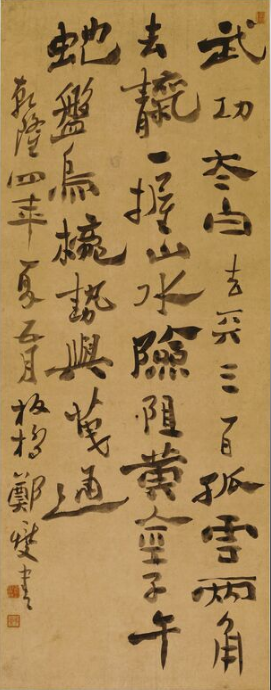 武功太白去天三百孤雲兩角
去靝一握山水險阻黃金子午
蛇盤烏櫳勢與通
乾隆四年夏五月板橋鄭燮書